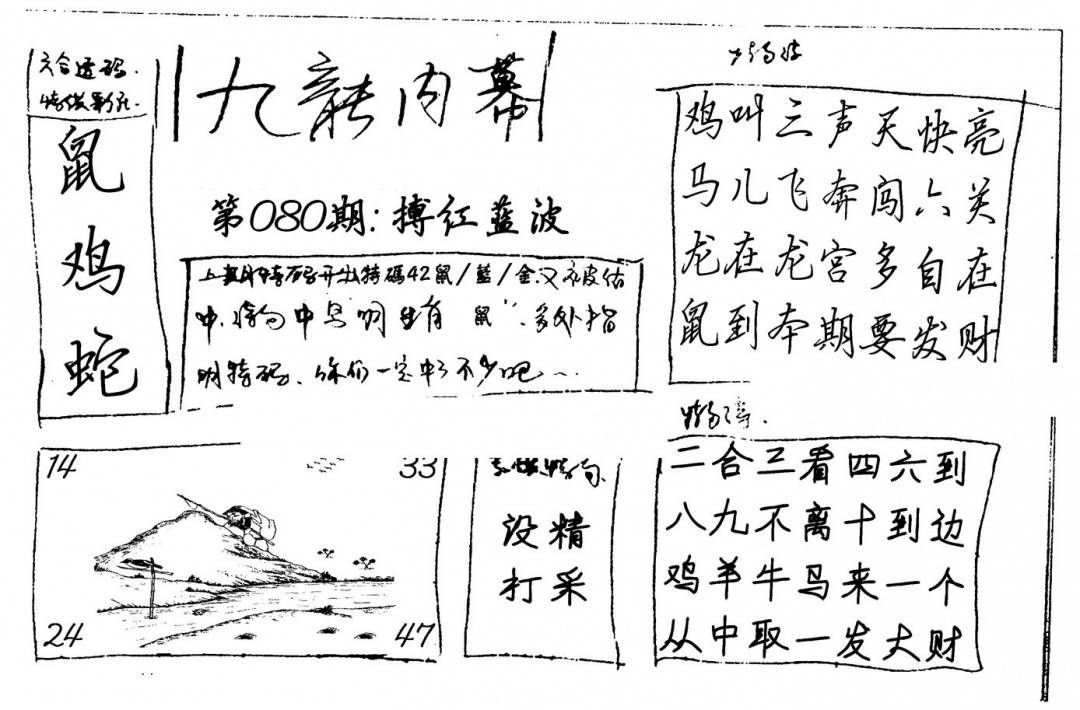 六合透码.
鼠
鸡
蛇
九龍内幕
第080期:搏红蓝波
上期特码开出特碼42鼠/藍/金.又被估
中.特肖中号明生肖 鼠".多处指
明特码.你们一定中了不少吧~
鸡叫三声天快亮
马儿飞奔闯六关
龙在龙宫多自在
鼠到本期要发财
14
33
24
47
设精
打采
二合三看四六到
八九不离十到边
鸡羊牛马来一个
从中取一发大财